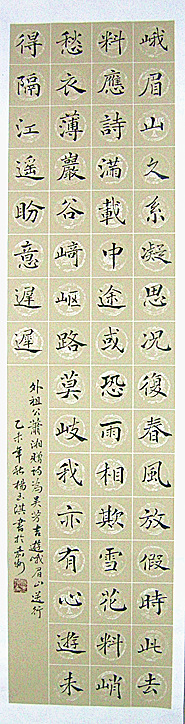 峨眉山久系凝思况復春風放假時此去
料應詩滿載中途或恐雨相欺雪花料峭
愁衣薄巖谷崎嶇路莫岐我亦有心遊未
得隔江遥盼意遲遲
外祖公蕭湘贈詩為吴芳吉遊峨眉山送行
乙未年秋楊玉淇書於